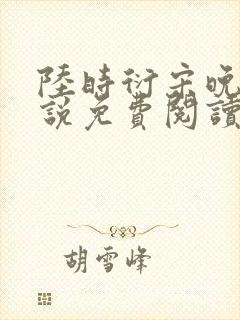 陸時衍宋晚
說免費閱讀
胡雪峰